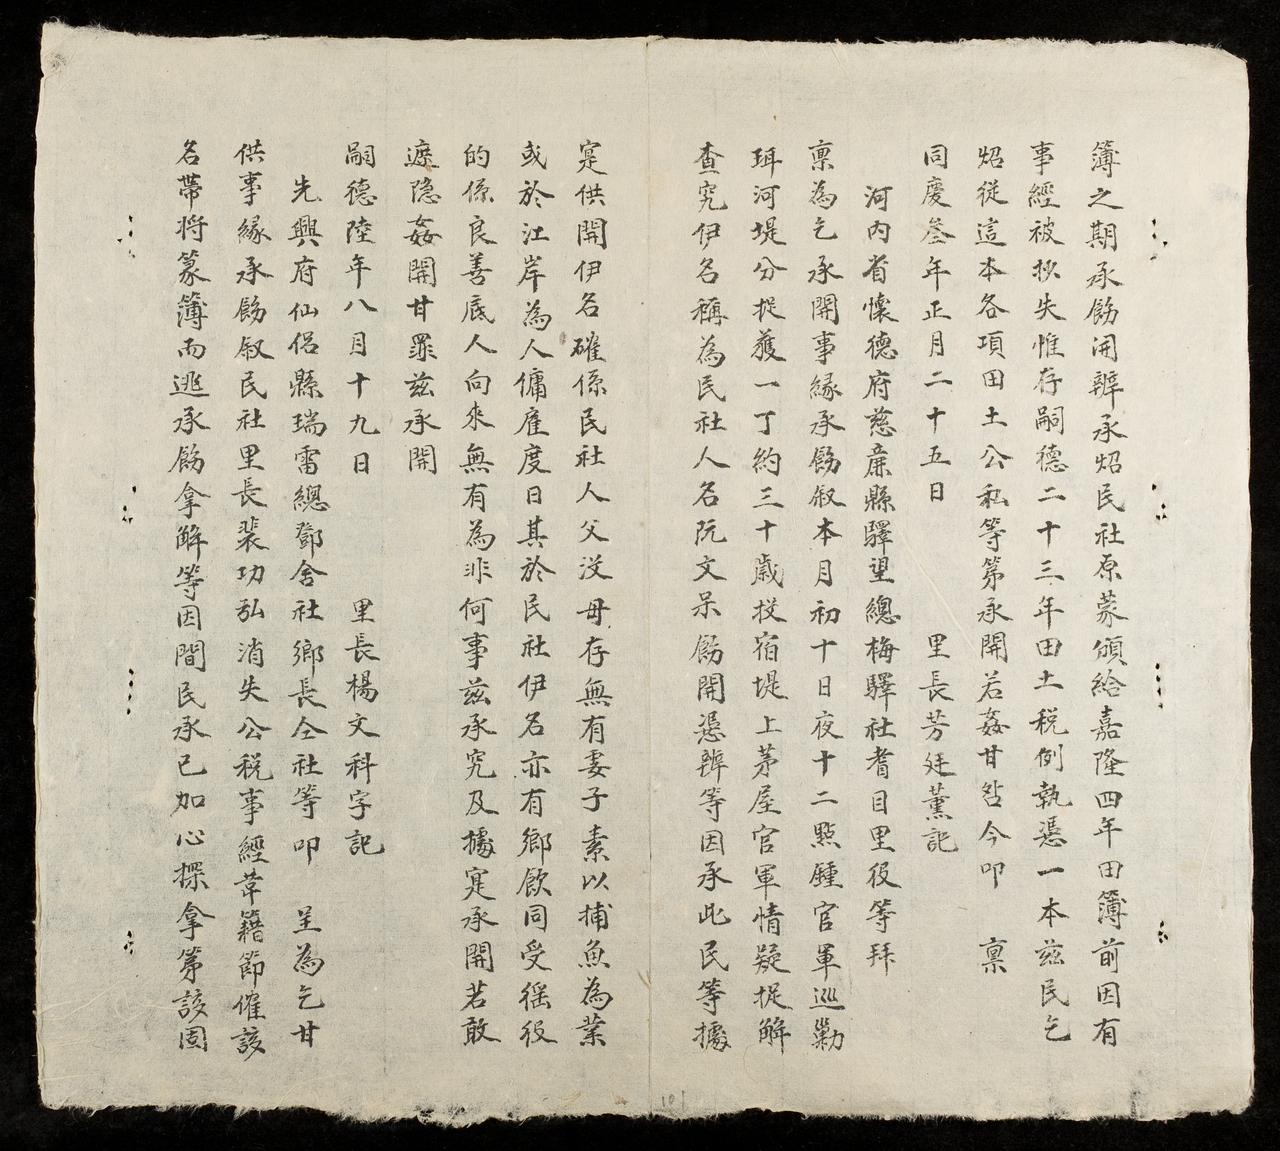 簿之期承飭開辨承炤民社原蒙頒給嘉隆四年田簿前因有
事經被抄失惟存嗣德二十三年田土税例執憑一本兹民乞
炤從這本各項田土公私等第承開若姦甘咎今叩　禀
同慶叁年正月二十五日　里長芳廷薰記
河内省懷德府慈廉縣驛望總梅驛社耆目里役等拜
禀為乞承開事緣承飭叙本月初十日夜十二點鍾官軍巡勦
珥河堤分捉獲一丁約三十歲投宿堤上茅屋官軍情疑捉解
查究伊名稱為民社人名阮文呆飭開憑辨等因承此民等據
寔供開伊名確係民社人父没母存無有妻子素以捕魚為業
或於江岸為人傭雇度日其於民社伊名亦有鄉飲同受徭役
的係良善底人向来無有為非何事兹承究及據寔承開若敢
遮隐姦開甘罪兹承開
嗣德陸年八月十九日　里長楊文科字記
先興府仙侣縣瑞雷總鄧舍社鄉長仝社等叩　呈為乞甘
供事緣承飭叙民社里長裴功弘消失公税事經革籍節催該
名帶将篆簿而逃承飭拿解等因間民承已加心探拿第該固